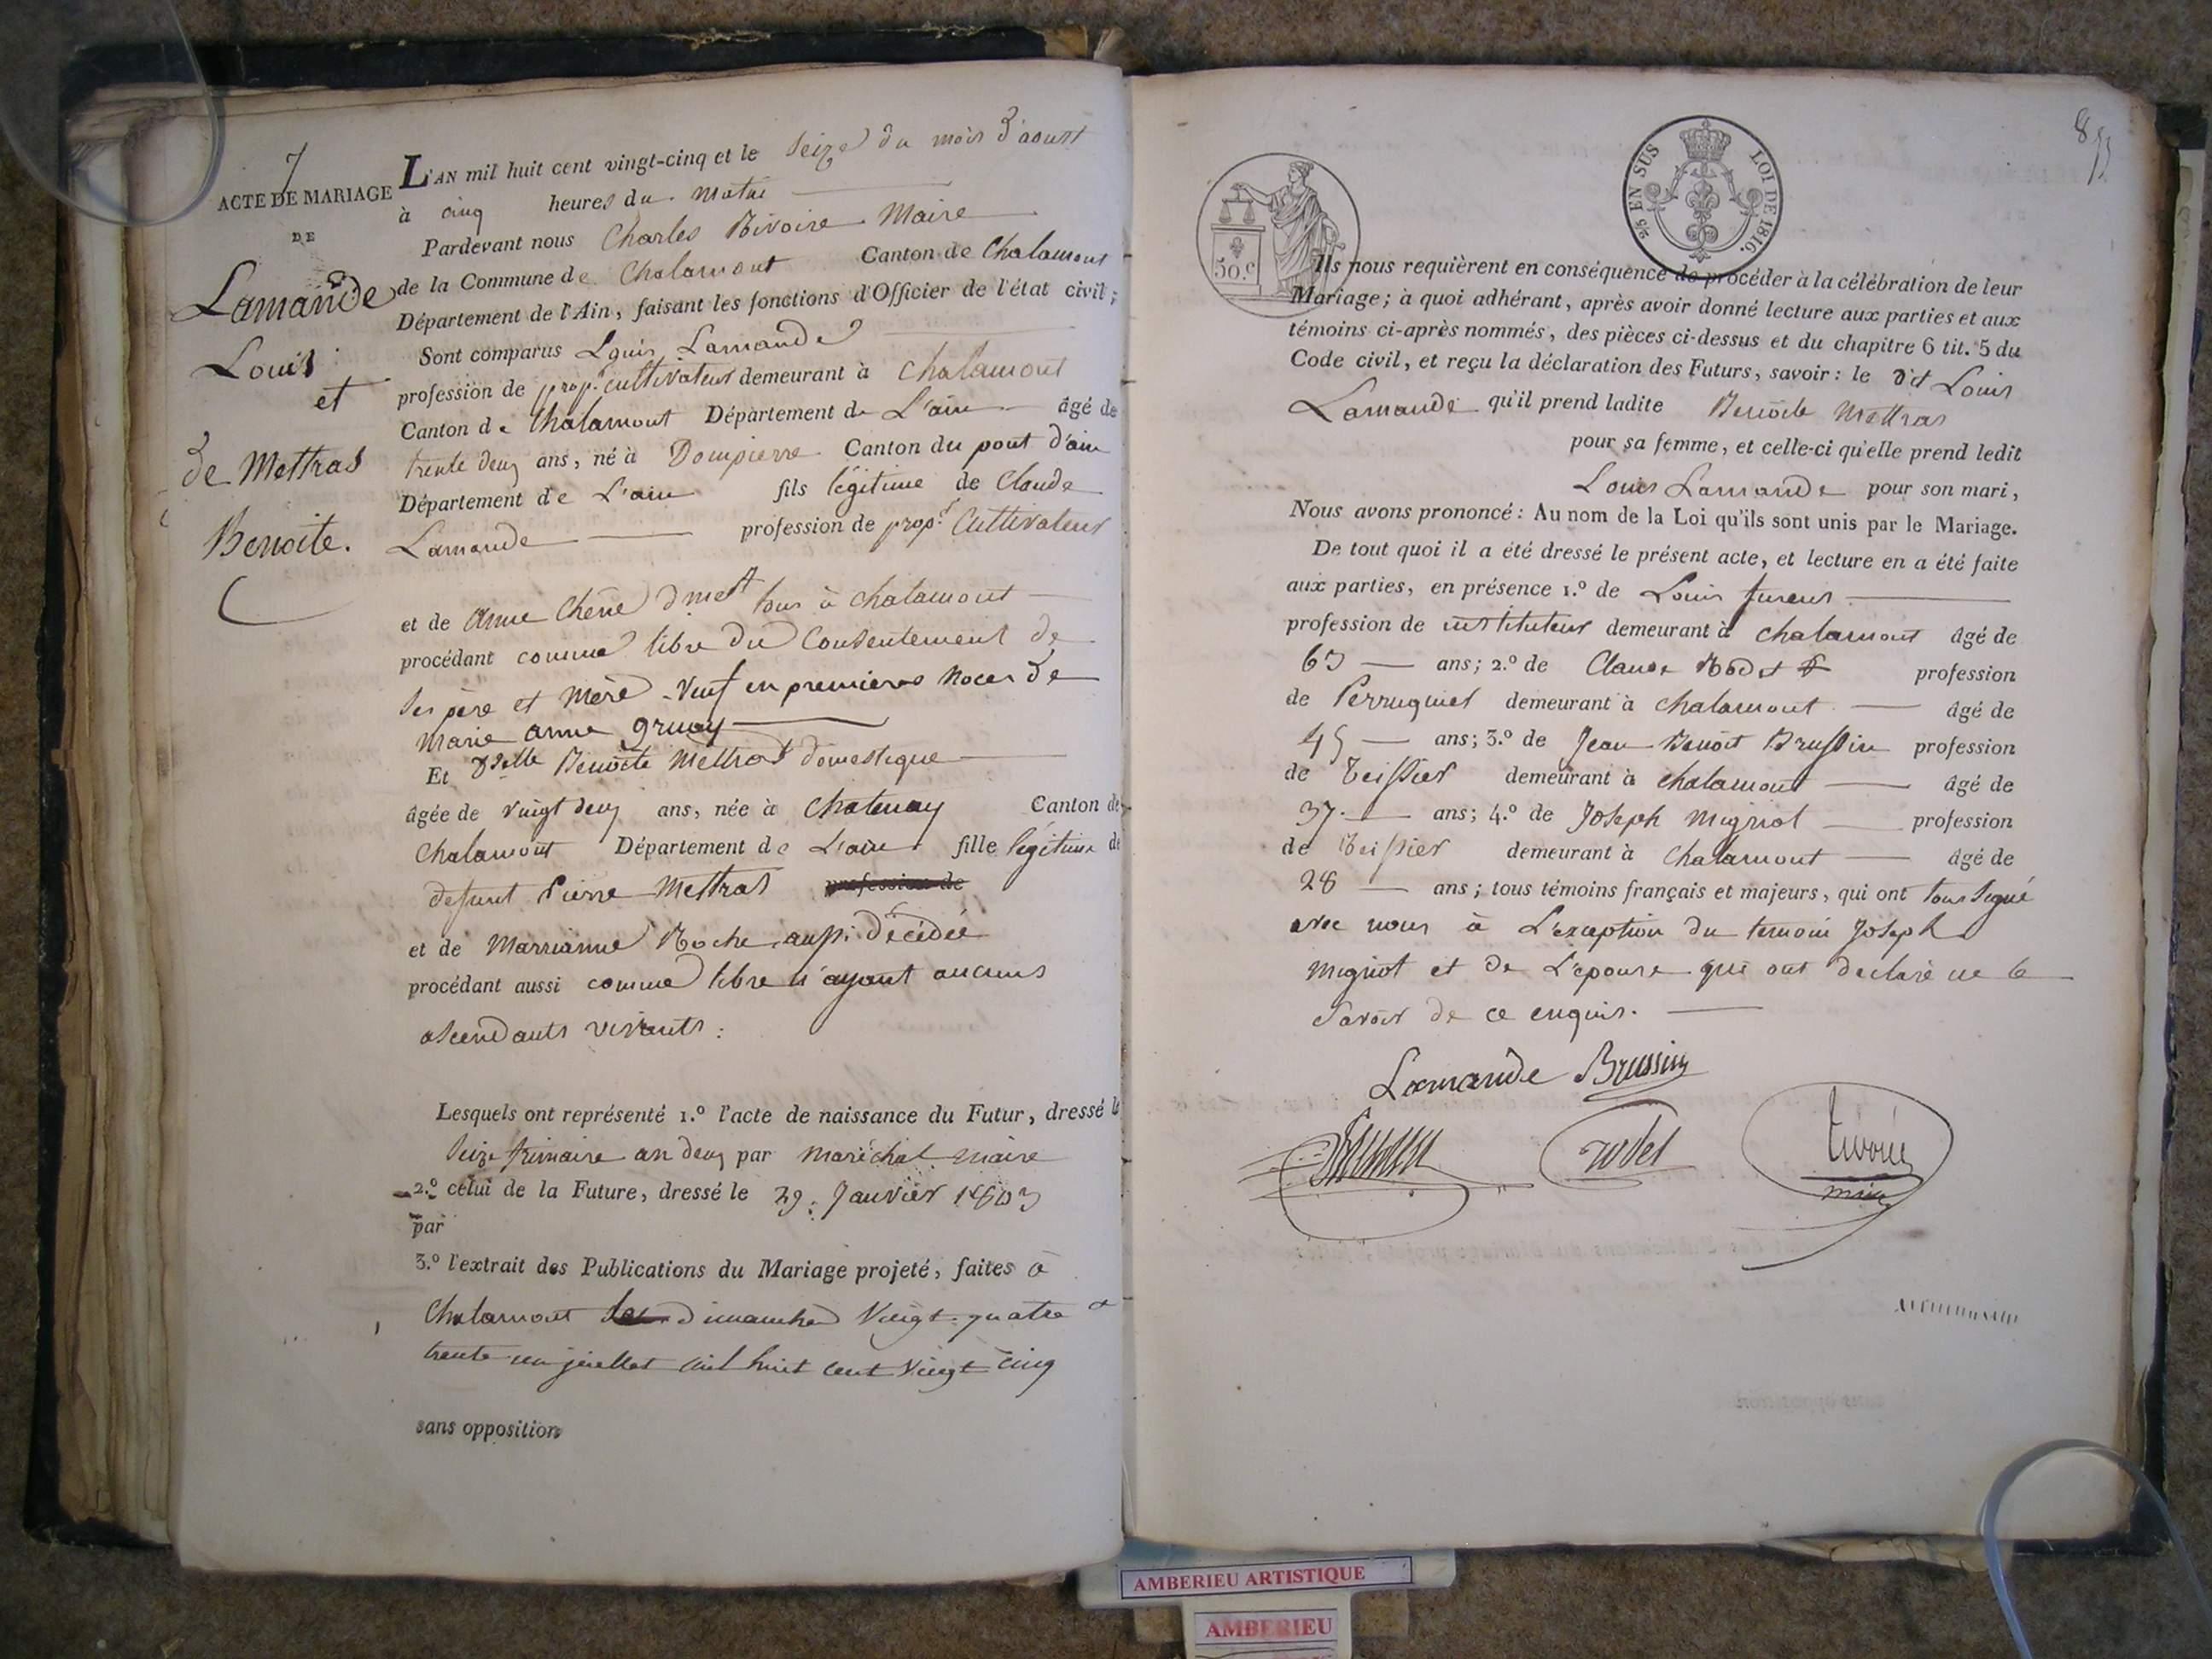 7
ACTE DE MARIAGE
DE
Lamande
Louis
et
de Mettras
Benoite.
L'AN mil huit cent vingt-cinq et le seize du mois d'aoust
à cinq heures du matin
Pardevant nous Charles Rivoire Maire
de la Commune de Chalamont Canton de Chalamont
Département de l'Ain, faisant les fonctions d'Officier de l'état civil ;
Sont comparus Louis Lamande
profession de prop.re cultivateur demeurant à Chalamont
Canton de Chalamont Département de L'ain âgé de
trente deux ans, né à Dompierre Canton du pont d'ain
Département de L'ain fils légitime de Claude
Lamande profession de prop.re Cultivateur
et de Anne Chêne dmet tous à chalamont
procédant comme libre du Consentement de
ses père et Mère - Veuf en premieres Noces de
Marie anne gruay
Et dselle Benoite Mettras domestique
âgée de vingt deux ans, née à Chatenay Canton de
Chalamont Département de L'ain fille légitime de
defunt Pierre Mettras profession de
et de Marrianne Roche aussi décédée
procédant aussi comme libre n'ayant aucuns
ascendants vivants :
Lesquels ont représenté 1.º l'acte de naissance du Futur, dressé le
seize frimaire an deux par Maréchal maire
2.º celui de la Future, dressé le 29. Janvier 1803
par
3.º l'extrait des Publications du Mariage projeté, faites à
Chalamont les dimanches Vingt-quatre et
trente un juillet mil huit cent Vingt cinq
sans opposition
8
50.c
2/5 EN SUS
LOI DE 1816.
Ils nous requièrent en conséquence de procéder à la célébration de leur
Mariage ; à quoi adhérant, après avoir donné lecture aux parties et aux
témoins ci-après nommés, des pièces ci-dessus et du chapitre 6 tit. 5 du
Code civil, et reçu la déclaration des Futurs, savoir : le dit Louis
Lamande qu'il prend ladite Benoite Mettras
pour sa femme, et celle-ci qu'elle prend ledit
Louis Lamande pour son mari,
Nous avons prononcé : Au nom de la Loi qu'ils sont unis par le Mariage.
De tout quoi il a été dressé le présent acte, et lecture en a été faite
aux parties, en présence 1.º de Louis
profession de instituteur demeurant à chalamont âgé de
63 ans ; 2.º de Claude Rodet profession
de Perruquier demeurant à chalamont âgé de
45 ans ; 3.º de Jean Benoit Brussin profession
de Teissier demeurant à chalamont âgé de
37 ans ; 4.º de Joseph Migniot profession
de Teissier demeurant à Chalamont âgé de
28 ans ; tous témoins français et majeurs, qui ont tous signé
avec nous à L'exception du temoin Joseph
Migniot et de L'épouse qui ont declaré ne le
savoir de ce enquis.
Lamande Brussin
rodet
rivoire
maire
AMBERIEU ARTISTIQUE
AMBERIEU